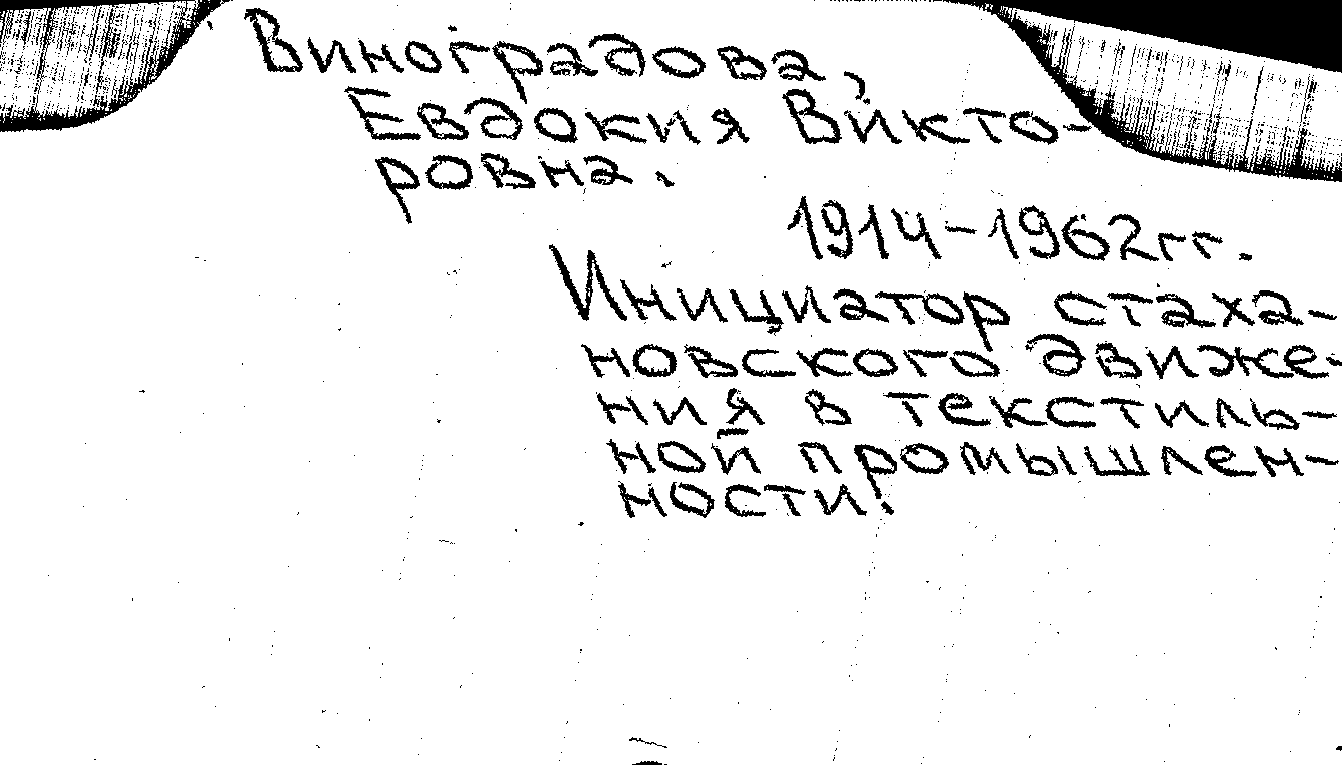 Виноградова,
Евдокия Викто-
ровна.
1914-1962гг.
Инициатор стаха-
новского движе-
ния в текстиль-
ной промышлен-
ности.